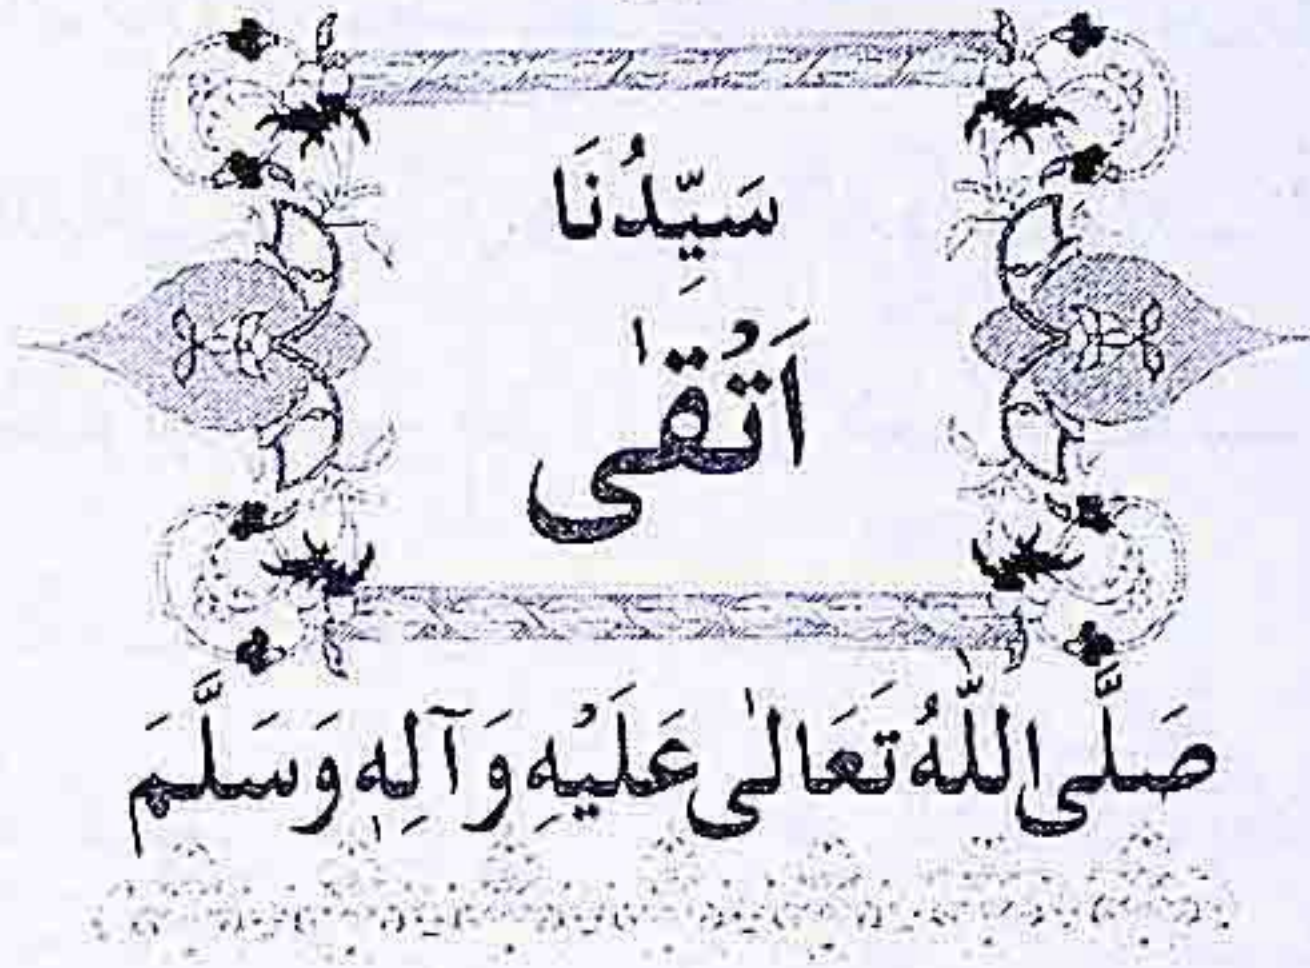 سَيِّدُنَا
اَتْقٰى
صَلَّى اللّٰهُ تَعَالٰى عَلَيْهِ وَآلِهٖ وَسَلَّمَ